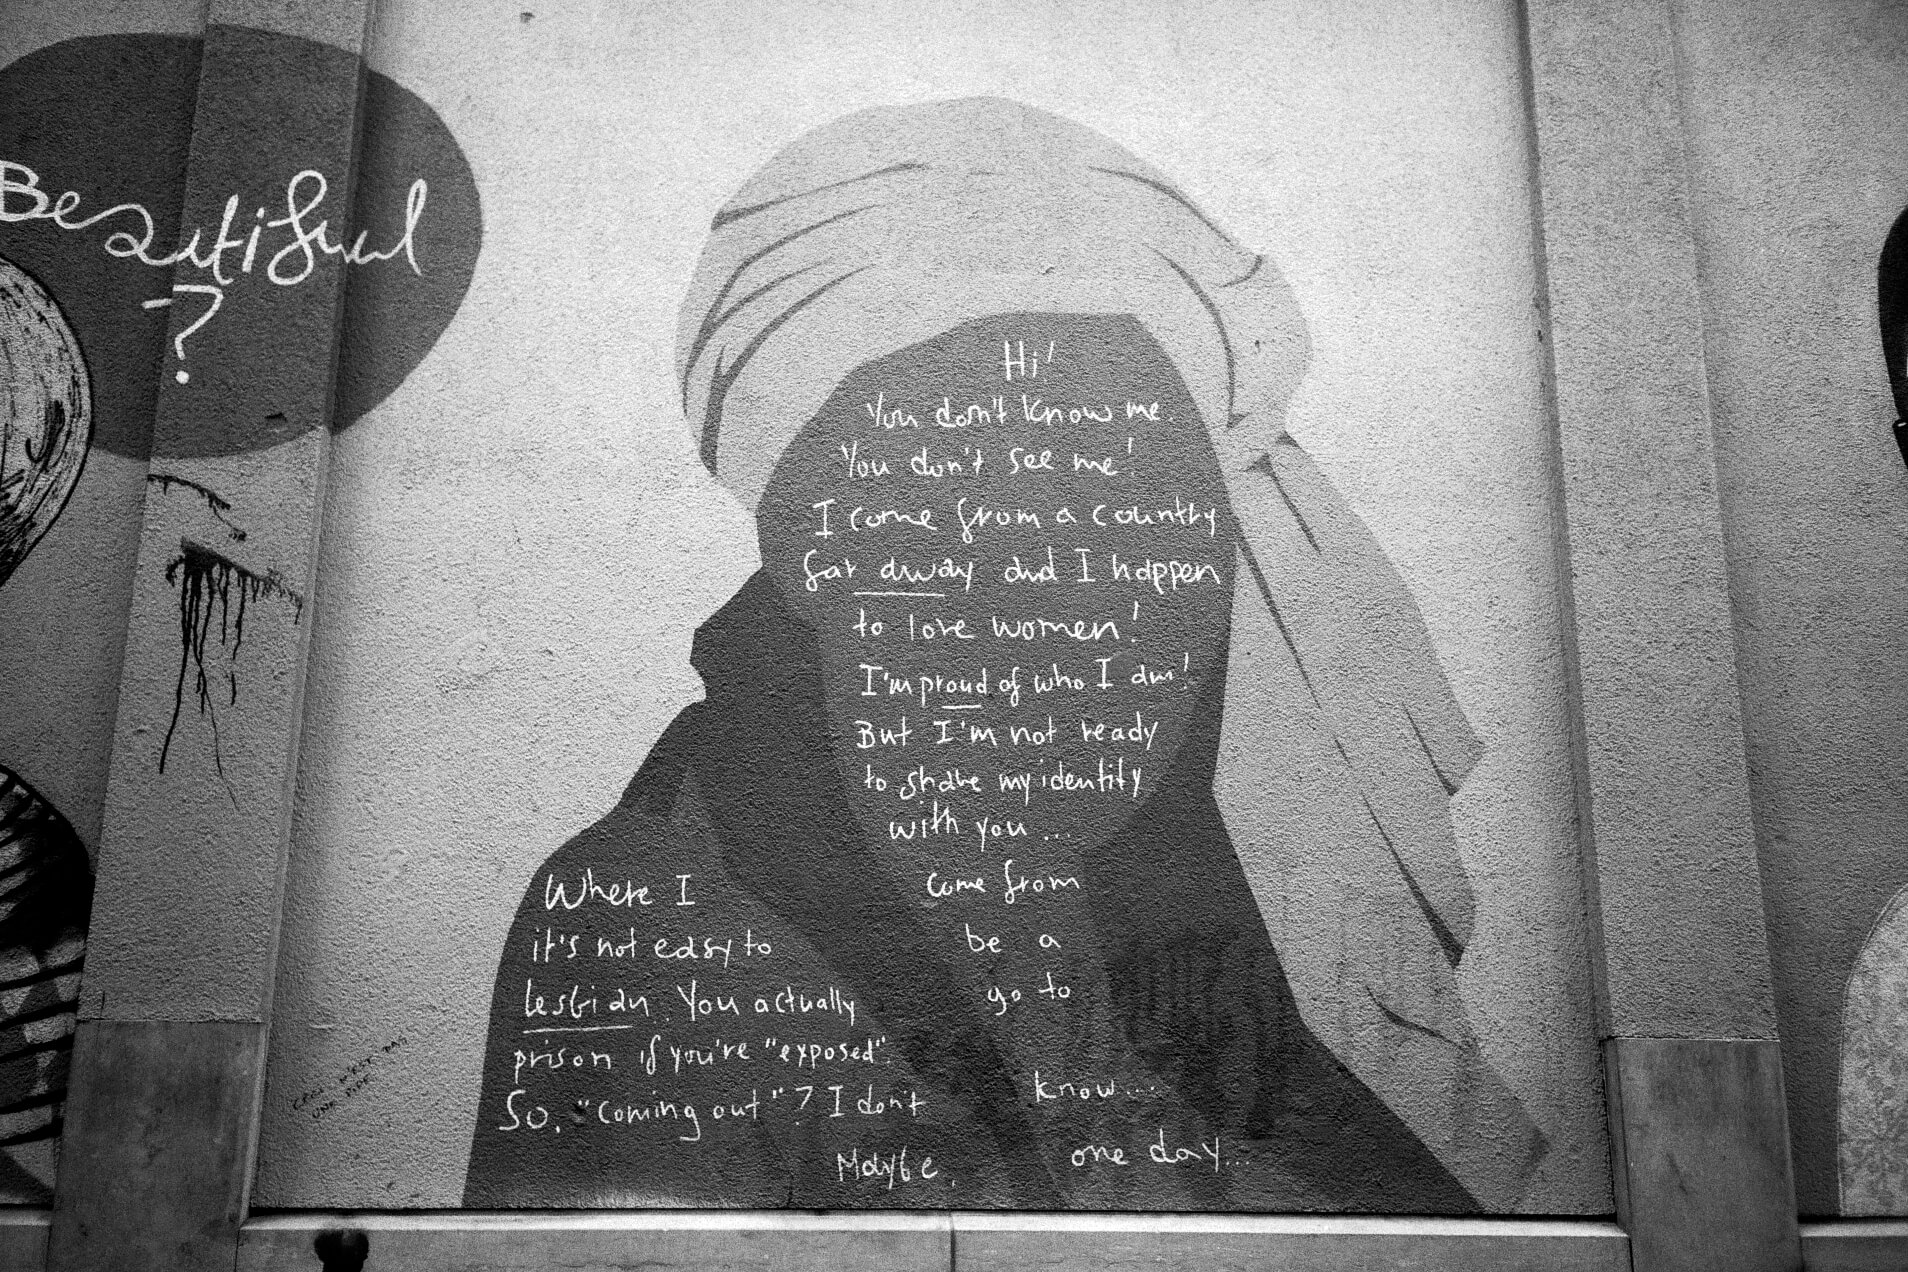 Beautiful
?
Hi!
You don't know me.
You don't see me!
I come from a country
far away and I happen
to love women!
I'm proud of who I am!
But I'm not ready
to share my identity
with you ...
Where I come from
it's not easy to be a
lesbian. You actually go to
prison if you're "exposed".
So, "coming out"? I don't know...
Maybe, one day...